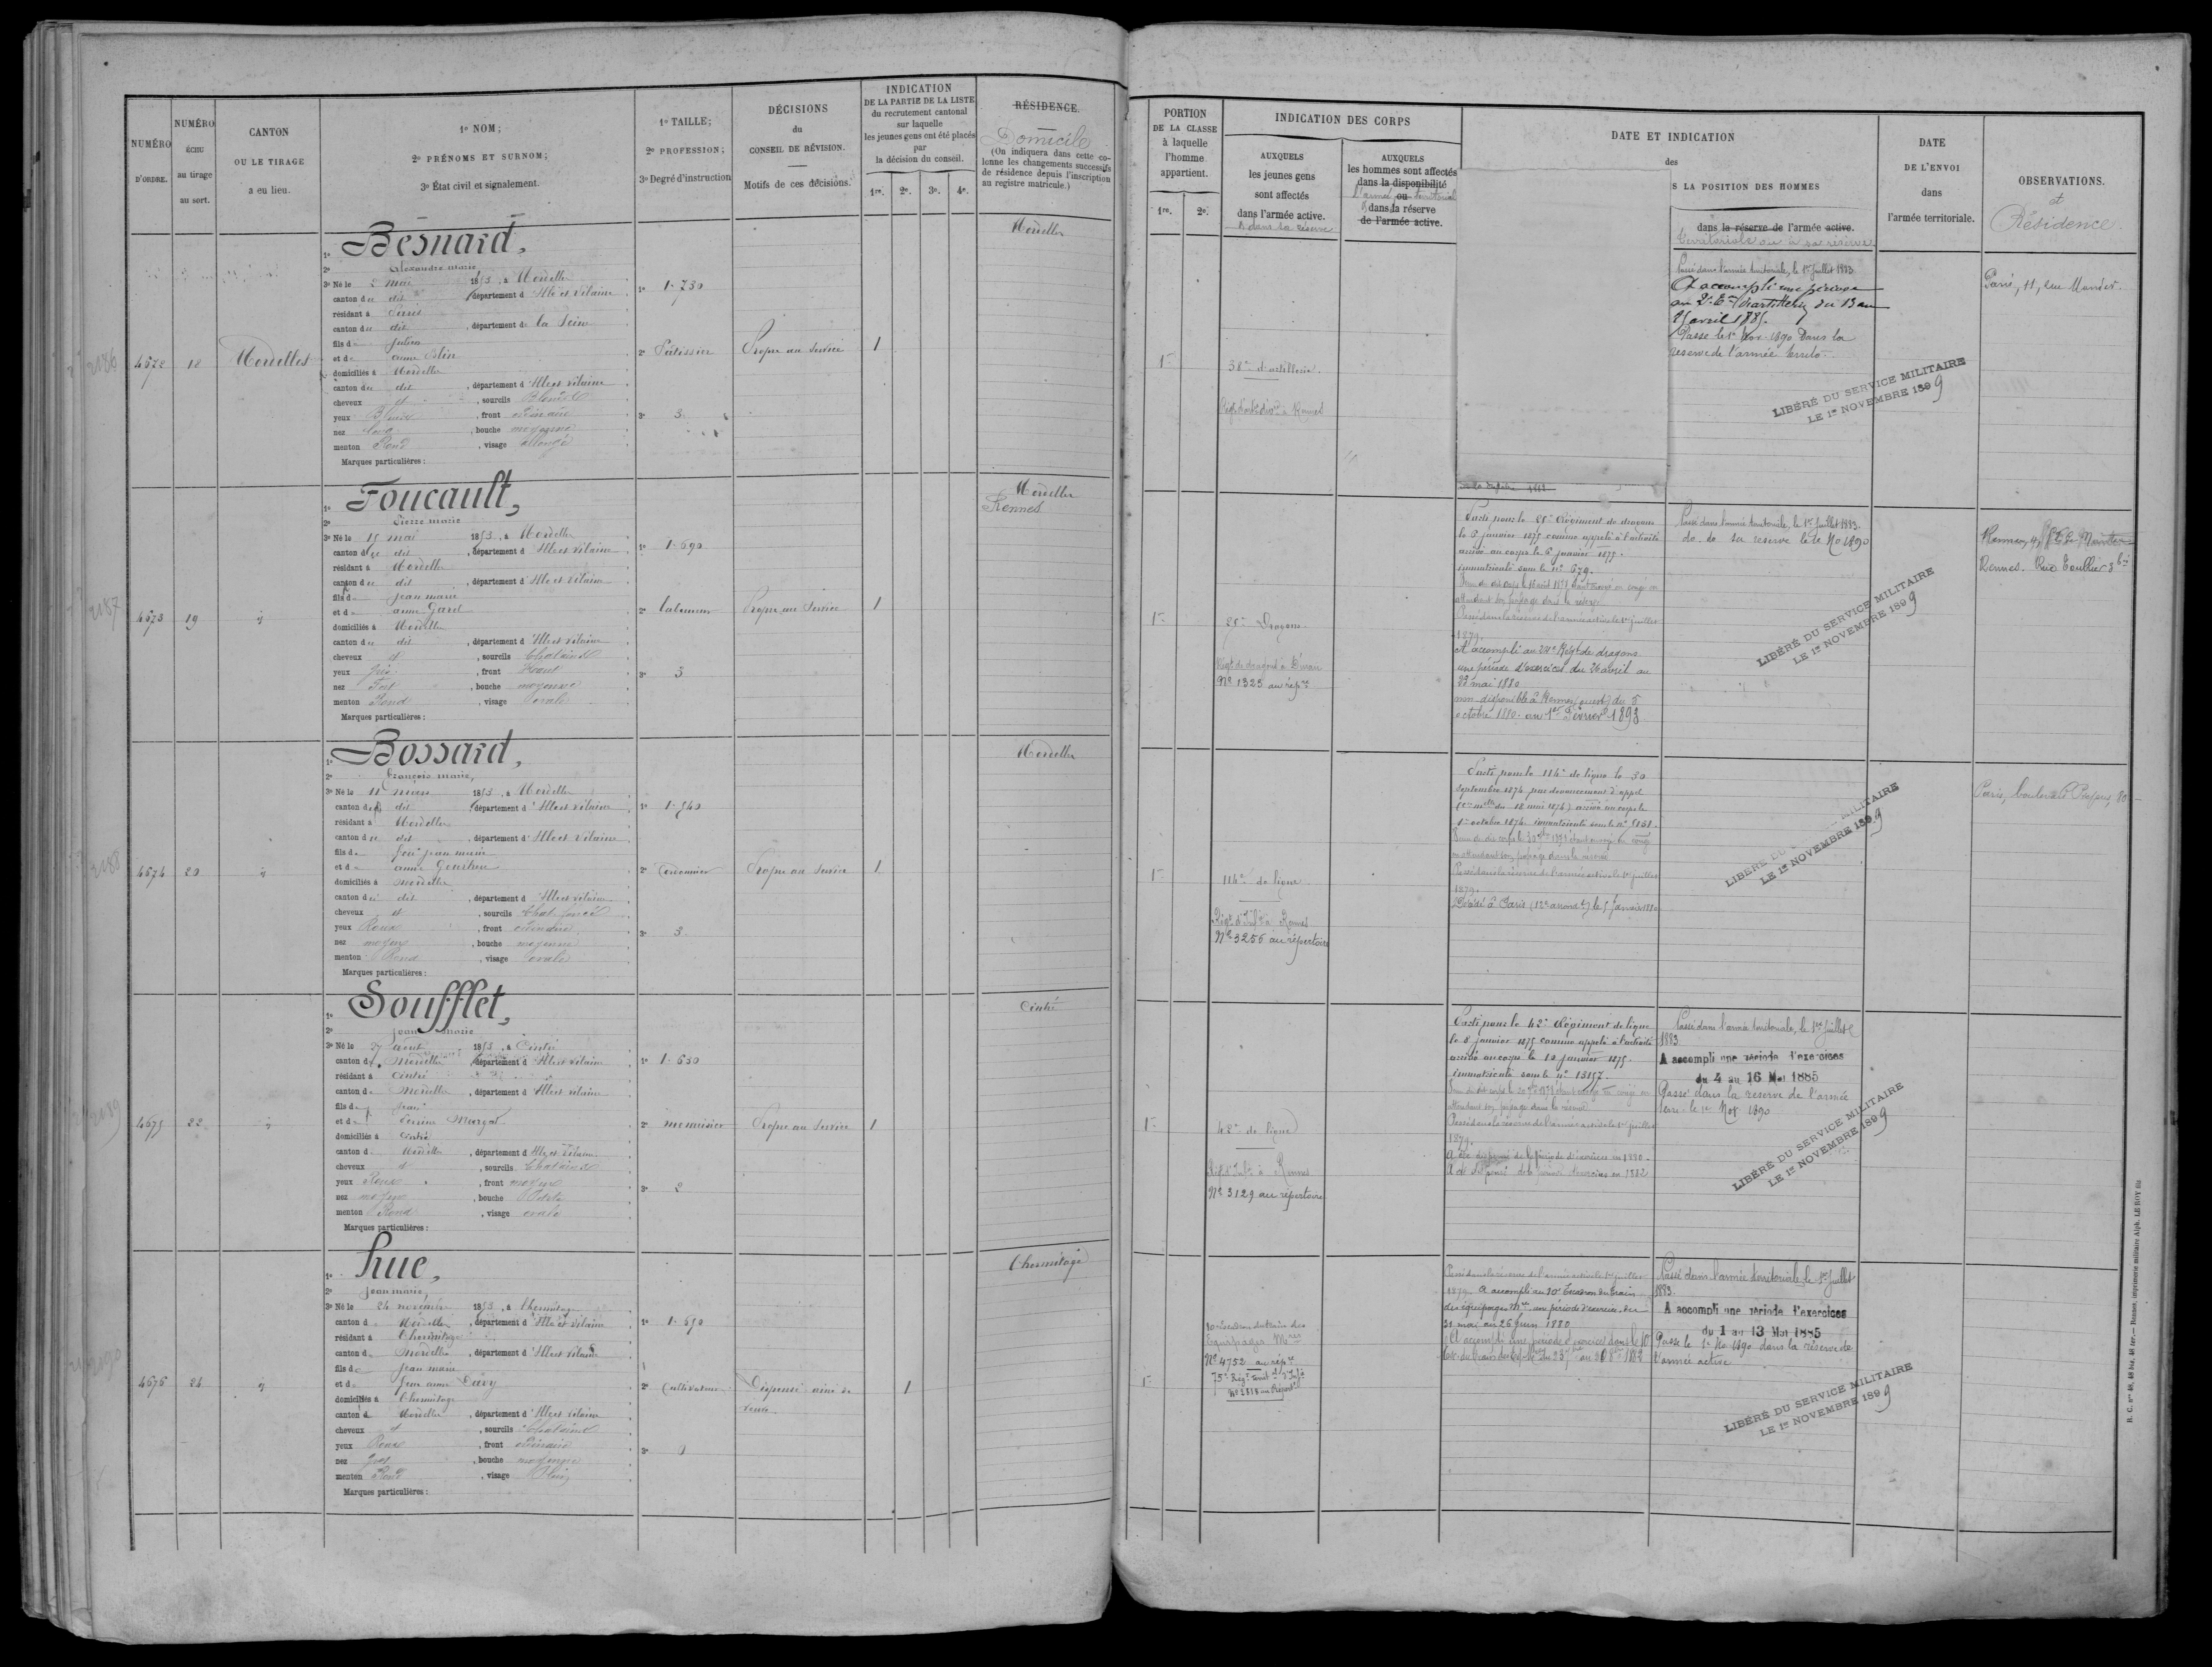 NUMÉRO D'ORDRE.
NUMÉRO ÉCHU au tirage au sort.
CANTON OU LE TIRAGE a eu lieu.
1º NOM;
2º PRÉNOMS ET SURNOM;
3º État civil et signalement.
1º TAILLE;
2º PROFESSION;
3º Degré d'instruction
DÉCISIONS
du
CONSEIL DE RÉVISION.
Motifs de ces décisions.
INDICATION
DE LA PARTIE DE LA LISTE
du recrutement cantonal
sur laquelle
les jeunes gens ont été placés
par
la décision du conseil.
1re. 2e. 3e. 4e.
RÉSIDENCE.
Domicile
(On indiquera dans cette co-
lonne les changements successifs
de résidence depuis l'inscription
au registre matricule.)
PORTION
DE LA CLASSE
à laquelle
l'homme
appartient.
1re. 2e.
INDICATION DES CORPS
AUXQUELS
les jeunes gens
sont affectés
dans l'armée active.
& dans la réserve
AUXQUELS
les hommes sont affectés
dans la disponibilité
l'armée ou territoriale
& dans la réserve
de l'armée active.
DATE ET INDICATION
des
S LA POSITION DES HOMMES
dans la réserve de l'armée active.
territoriale ou à sa réserve
DATE
DE L'ENVOI
dans
l'armée territoriale.
OBSERVATIONS.
et
Résidence
2186
4672 18 Mordelles
1º Besnard,
2º Alexandre marie
3º Né le 2 mai 1853, à Mordelles
canton du dit, département d'Ille et Vilaine
résidant à Paris
canton du dit, département de la Seine
fils de Julien
et de anne Blin
domiciliés à Mordelles
canton du dit, département d'Ille et Vilaine
cheveux et, sourcils Blonds
yeux Bleus, front ordinaire
nez long, bouche moyenne
menton Rond, visage allongé
Marques particulières :
1º 1.730
2º Pâtissier
3º 3
Propre au service
1
Mordelles
1re
38e d'artillerie.
Passé dans l'armée territoriale, le 1er Juillet 1883
A accompli une période
au 2e Ern d'artillerie du 13 au
25 avril 1885.
Passé le 1er Nov. 1890 Dans la
réserve de l'armée territo.
LIBÉRÉ DU SERVICE MILITAIRE
LE 1er NOVEMBRE 1899
Paris, 11, rue Mandar.
2187
4673 19 id
1º Foucault,
2º Pierre marie
3º Né le 15 mai 1853, à Mordelles
canton du dit, département d'Ille et Vilaine
résidant à Mordelles
canton du dit, département d'Ille et Vilaine
fils de Jean marie
et de anne Garel
domiciliés à Mordelles
canton du dit, département d'Ille et Vilaine
cheveux et, sourcils Chatains
yeux gris, front Haut
nez Fort, bouche moyenne
menton Rond, visage ovale
Marques particulières :
1º 1.690
2º laboureur
3º 3
Propre au Service
1
Mordelles
Rennes
1re
25e Dragons
Régt de dragons à Dinan
Nº 1325 au répre
Parti pour le 25e Régiment de dragons
le 5 janvier 1875 comme appelé à l'activité
arrivé au corps le 6 janvier 1875.
immatriculé sous le nº 679.
attendant son passage dans la réserve
Passé dans la réserve de l'armée active le 1er juillet
1879.
A accompli au 24e Régt de dragons
une période d'exercices du 26 avril au
23 mai 1880
non disponible à Rennes (ouest) du 5
octobre 1880. au 1er Février 1893
Passé dans l'armée territoriale, le 1er Juillet 1883.
do. do sa reserve le 1er No 1890
LIBÉRÉ DU SERVICE MILITAIRE
LE 1er NOVEMBRE 1899
Rennes. Rue Toullier 3 bis
2188
4674 20 id
1º Bossard,
2º François marie,
3º Né le 11 mars 1853, à Mordelles
canton du dit, département d'Ille et Vilaine
résidant à Mordelles
canton du dit, département d'Ille et Vilaine
fils de feu jean marie
et de anne
domiciliés à mordelles
canton du dit, département d'Ille et Vilaine
cheveux et, sourcils Chat. foncé
yeux Roux, front ordinaire
nez moyen, bouche moyenne
menton Rond, visage ovale
Marques particulières :
1º 1.540
2º Cordonnier
3º 3
Propre au Service
1
Mordelles
1re
114e de ligne
Régt d'Infie à Rennes
Nº 3256 au répertoire
Parti pour le 114e de ligne le 30
septembre 1874 par devancement d'appel
(cre mlle du 18 mai 1874) arrivé au corps le
1er octobre 1874. immatriculé sous le nº 5151.
en attendant son passage dans la réserve
Passé dans la réserve de l'armée active le 1er juillet
1879.
Décédé à Paris (12e arrondt) le 5 Janvier 1880
LIBÉRÉ DU MILITAIRE
LE 1er NOVEMBRE 1899
2189
4675 22 id
1º Soufflet,
2º Jean marie
3º Né le 27 aout 1853, à Cintré
canton de Mordelles, département d'Ille et Vilaine
résidant à Cintré
canton de Mordelles, département d'Ille et Vilaine
fils de Jean
et de Perrine Margat
domiciliés à Cintré
canton de Mordelles, département d'Ille et Vilaine
cheveux et, sourcils Chatains
yeux Roux, front moyen
nez moyen, bouche Petite
menton Rond, visage ovale
Marques particulières :
1º 1.630
2º menuisier
3º 2
Propre au Service
1
Cintré
1re
42e de ligne
Régt d'Infie à Rennes
Nº 3129 au répertoire
Parti pour le 42e Régiment de ligne
le 8 janvier 1875 comme appelé à l'activité
arrivé au corps le 10 janvier 1875.
immatriculé sous le nº 13157.
attendant son passage dans la réserve
Passé dans la réserve de l'armée active le 1er juillet
1879.
A été dispensé de la période d'exercices en 1880.
A été dispensé de la période d'exercices en 1882
Passé dans l'armée territoriale, le 1er Juillet
1883
A accompli une période d'exercices
du 4 au 16 Mai 1885
Passé dans la réserve de l'armée
terre. le 1er Nov 1890
LIBÉRÉ DU SERVICE MILITAIRE
LE 1er NOVEMBRE 1899
2190
4676 24 id
1º huc,
2º Jean marie,
3º Né le 24 novembre 1853, à l'hermitage
canton de Mordelles, département d'Ille et Vilaine
résidant à l'hermitage
canton de Mordelles, département d'Ille et Vilaine
fils de Jean marie
et de feue anne Davy
domiciliés à l'hermitage
canton de Mordelles, département d'Ille et Vilaine
cheveux et, sourcils Chatains
yeux Roux, front ordinaire
nez gros, bouche moyenne
menton Rond, visage Plein
Marques particulières :
1º 1.690
2º Cultivateur
3º 0
Dispensé ainé de
veuve.
1
l'hermitage
1re
10e Escadron du train des
Equipages Mres
Nº 4752 au répre
75e Régt territal d'Infie
Passé dans la réserve de l'armée active le 1er juillet
1879 A accompli au 10e Escadron du train
des équipages Mres une période d'exercices du
31 mai au 26 juin 1880
A accompli une période d'exercices dans le 10e
Passé dans l'armée territoriale, le 1er Juillet
1883
A accompli une période d'exercices
du 1 au 13 Mai 1885
Passé le 1er No 1890 dans la réserve de
l'armée active
LIBÉRÉ DU SERVICE MILITAIRE
LE 1er NOVEMBRE 1899
R. C. nos 48, 48 bis, 48 ter.— Rennes, imprimerie militaire Alph. LE ROY fils